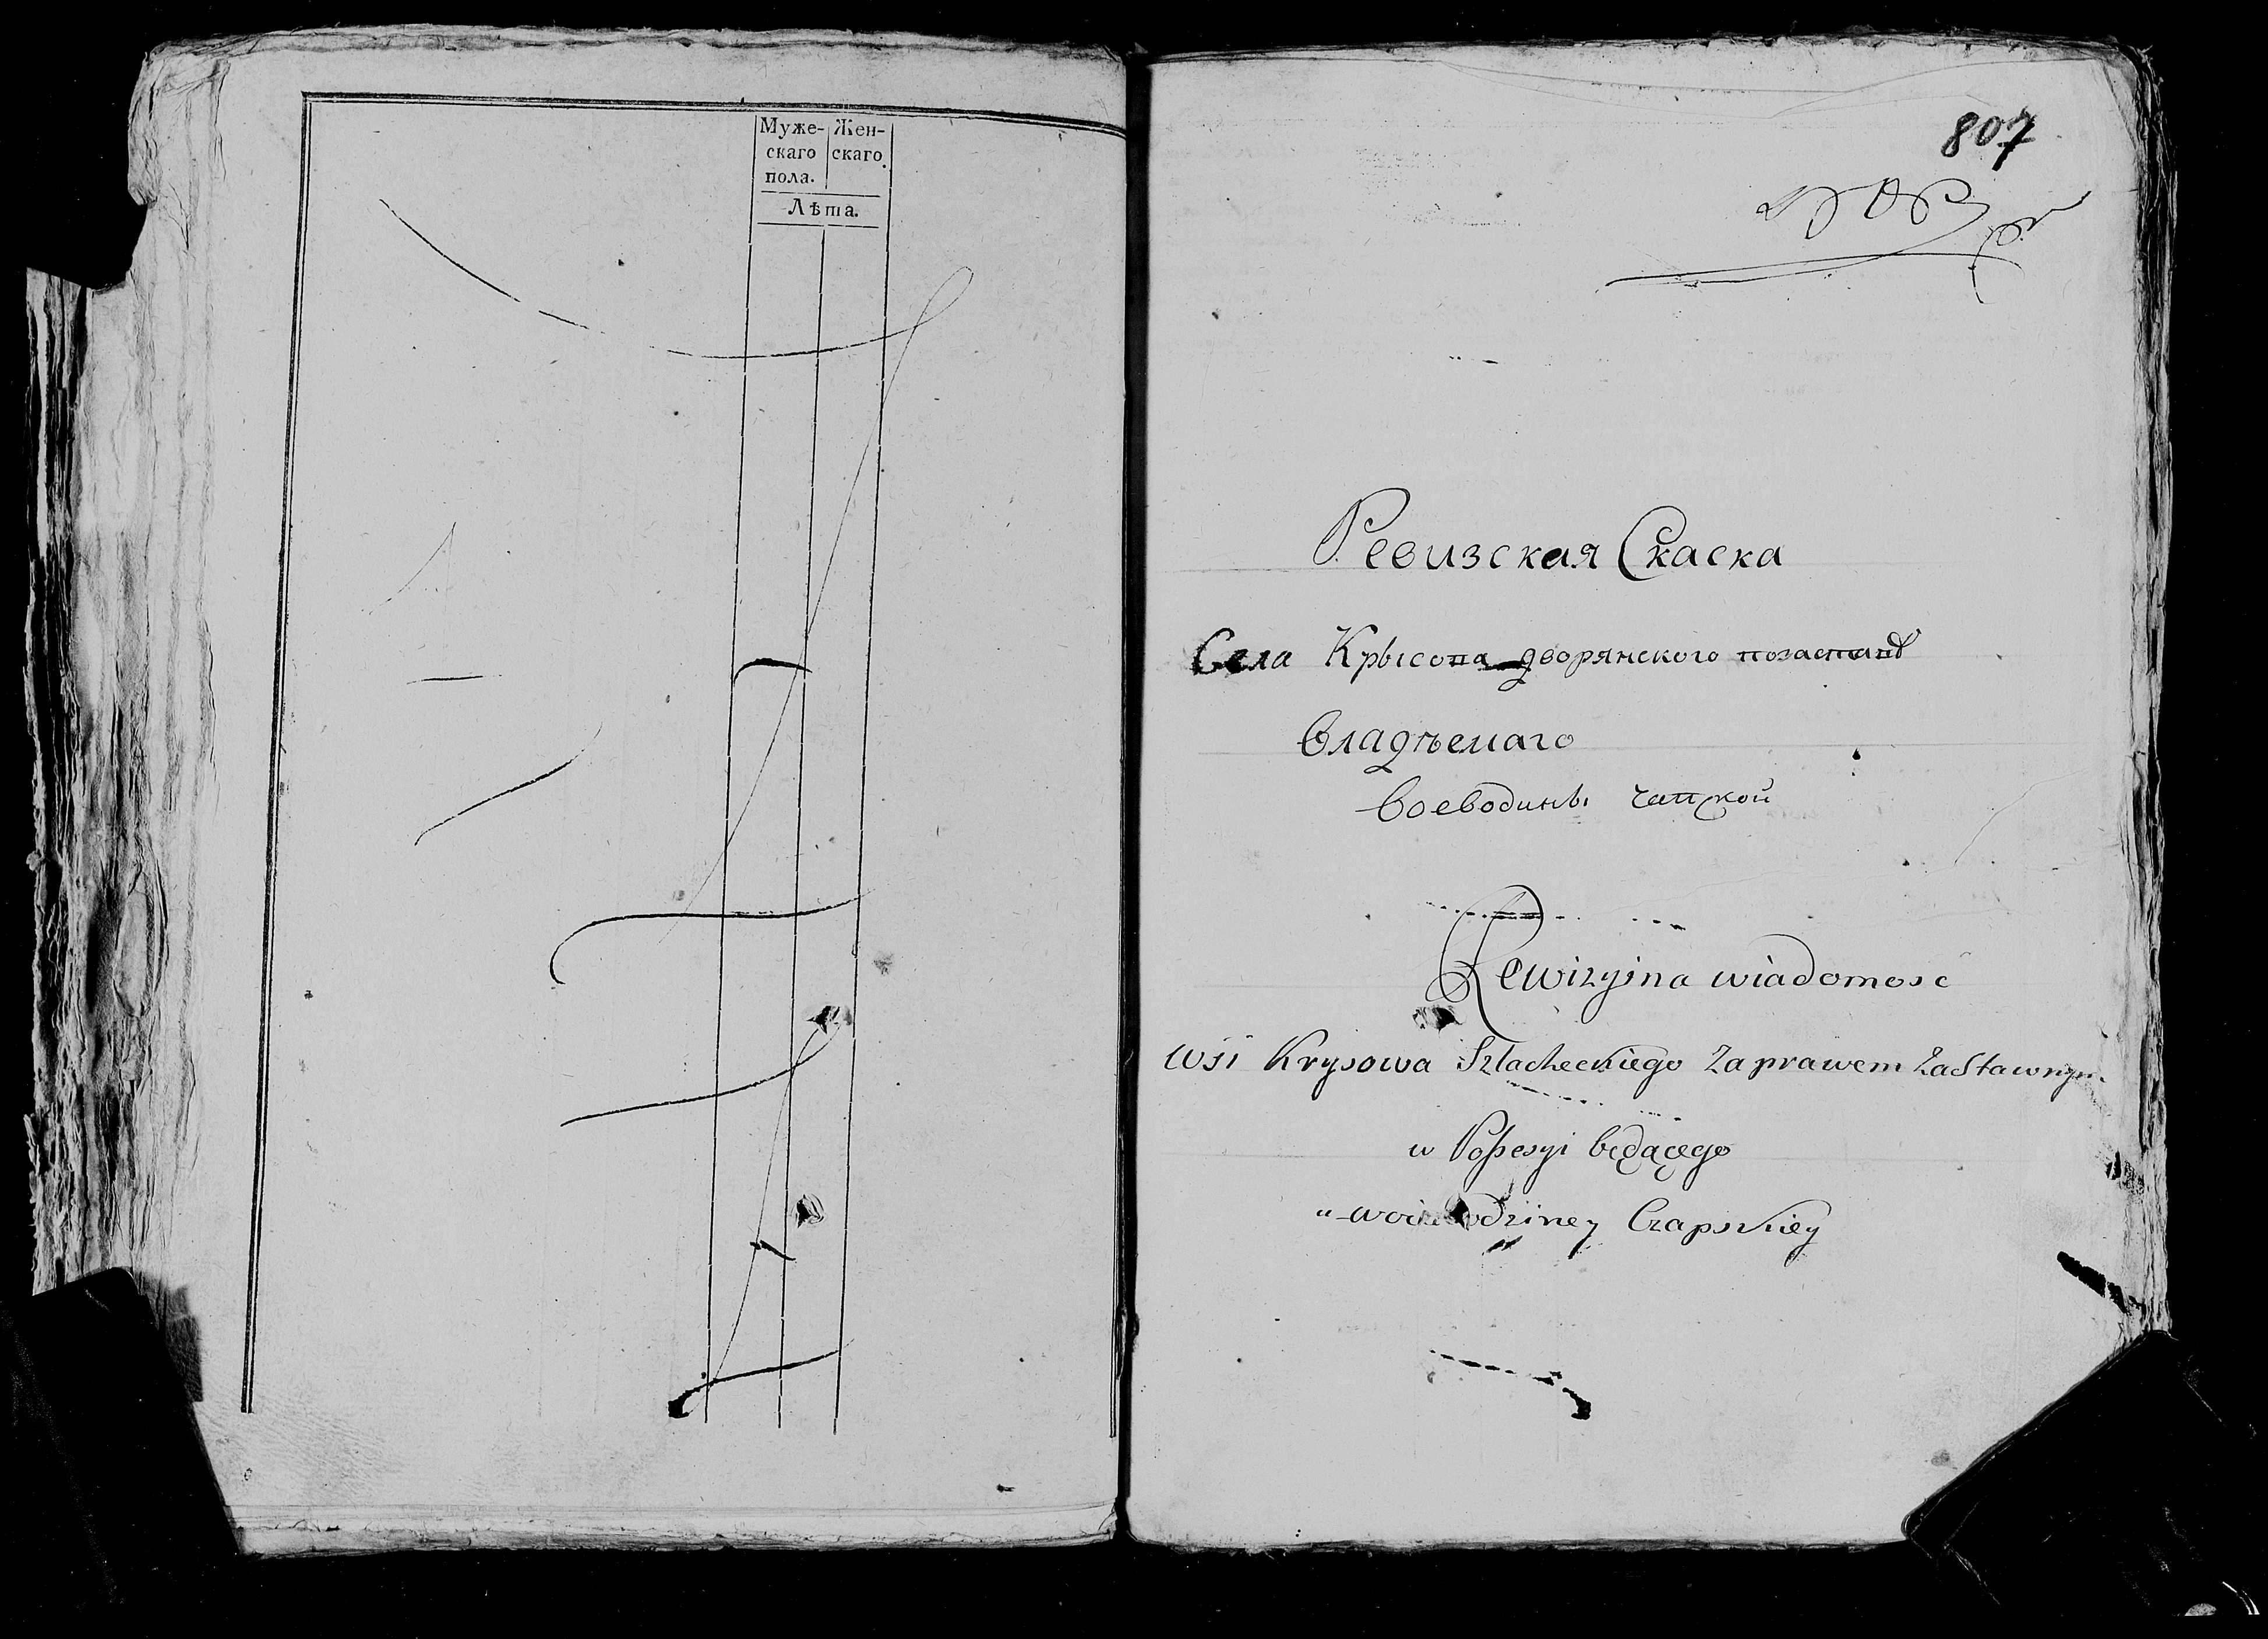 Муже- Жен-
скаго скаго.
пола.
Лѣта.
807
Ревизская Скаска
Села Крысопа дворянского
владѣемаго
воеводины чапской
Rewizyina wiadomosć
wsi Krysowa Szlacheckiego za prawem zastawnym
w Possesyi będącego
u woiewodziney Czapskiey